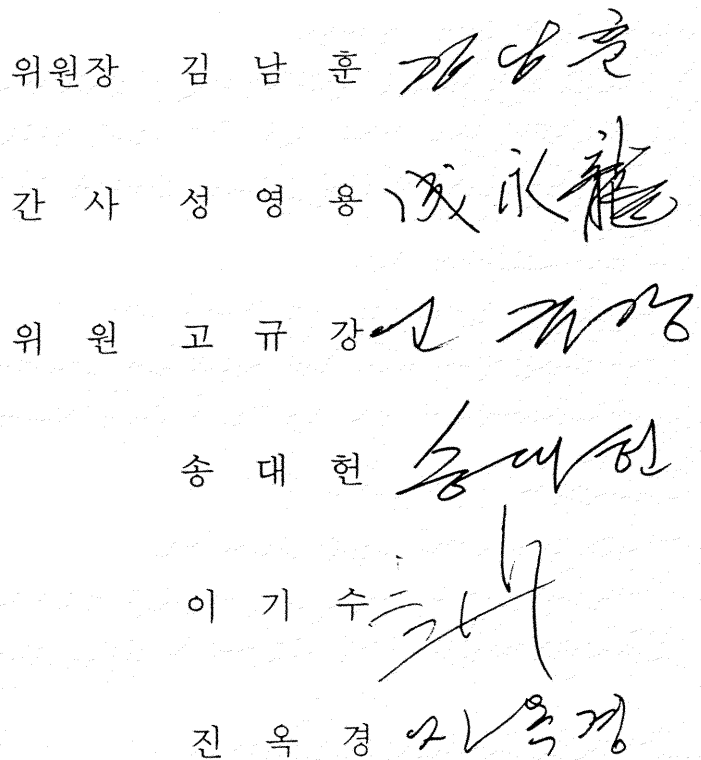 위원장 김 남 훈 김남훈
간 사 성 영 용 成永龍
위 원 고 규 강 고규강
송 대 헌 송대헌
이 기 수
진 옥 경 진옥경